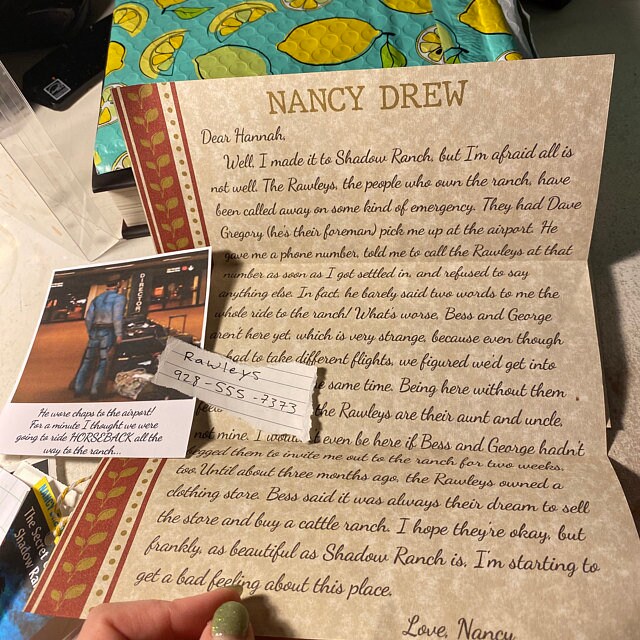 NANCY DREW
Dear Hannah,
Well, I made it to Shadow Ranch, but I'm afraid all is
not well. The Rawleys, the people who own the ranch, have
been called away on some kind of emergency. They had Dave
Gregory (he's their foreman) pick me up at the airport. He
gave me a phone number, told me to call the Rawleys at that
number as soon as I got settled in, and refused to say
anything else. In fact, he barely said two words to me the
whole ride to the ranch! What's worse, Bess and George
aren't here yet, which is very strange, because even though
had to take different flights, we figured we'd get into
same time. Being here without them
the Rawleys are their aunt and uncle,
not mine. I wouldn't even be here if Bess and George hadn't
begged them to invite me out to the ranch for two weeks,
too. Until about three months ago, the Rawleys owned a
clothing store. Bess said it was always their dream to sell
the store and buy a cattle ranch. I hope they're okay, but
frankly, as beautiful as Shadow Ranch is, I'm starting to
get a bad feeling about this place.
Love, Nancy
Rawleys
928-555-7373
DIRECTORY
He wore chaps to the airport!
For a minute I thought we were
going to ride HORSEBACK all the
way to the ranch...
The Secret
Shadow Ra